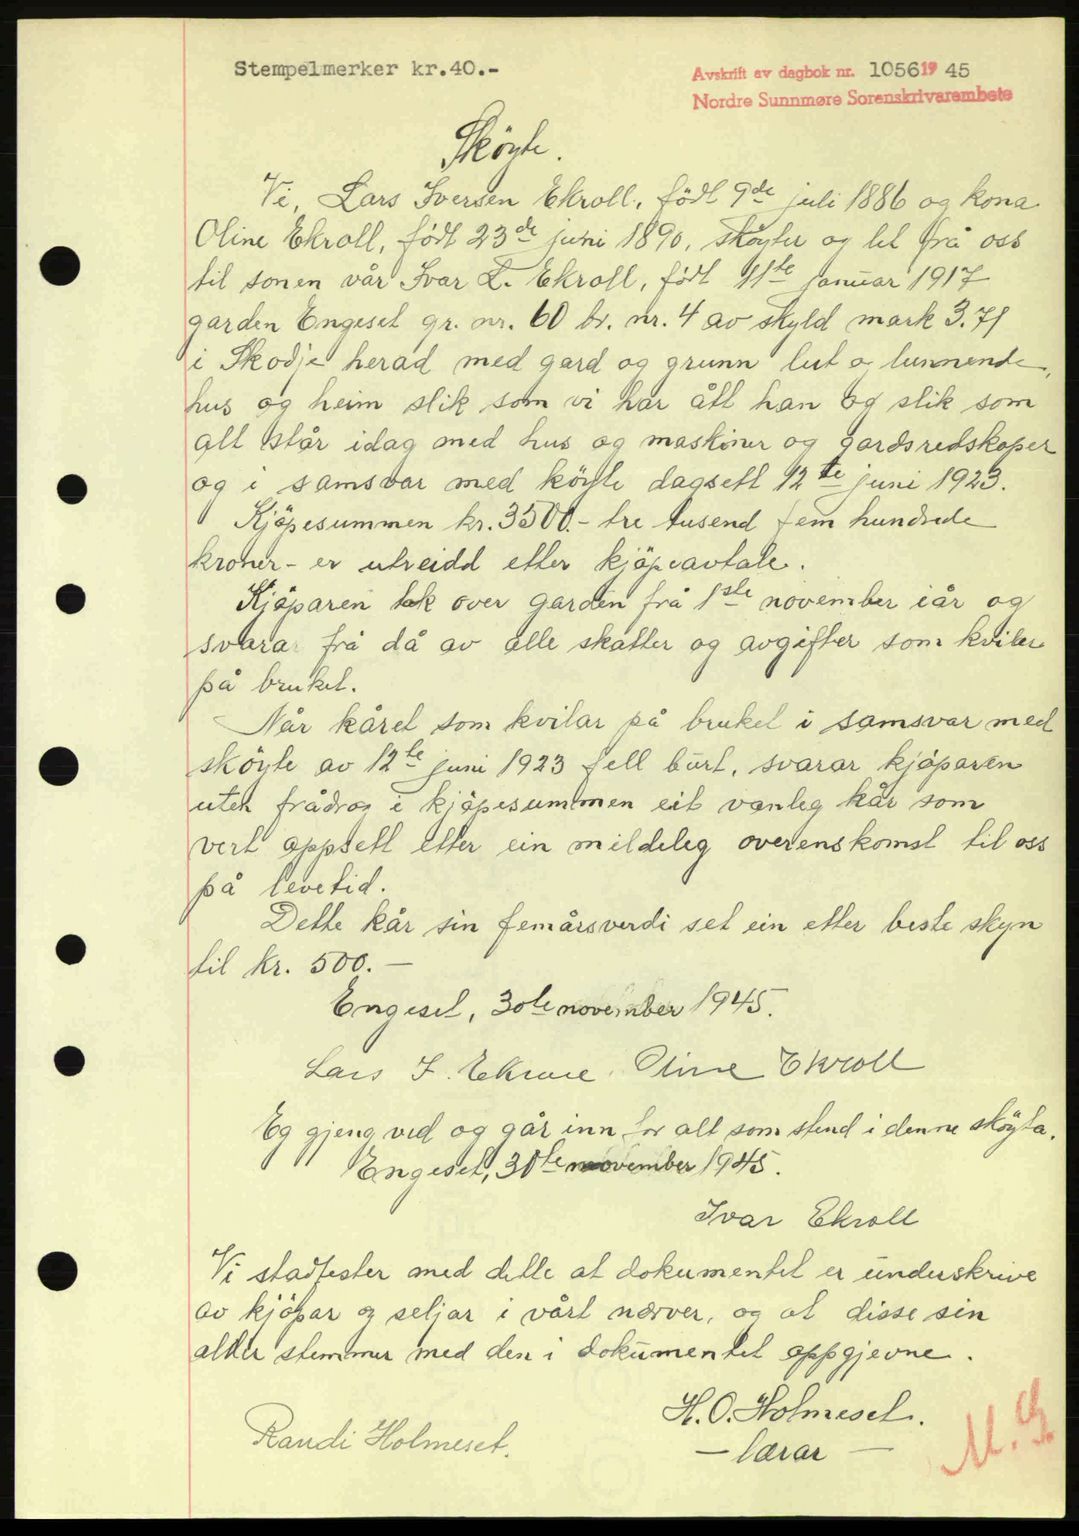 Stempelmerker kr.40.-
Avskrift av dagbok nr. 1056 19 45
Nordre Sunnmøre Sorenskrivarembete
Sköyte.
Vi, Lars Iversen Ekroll, födt 9de juli 1886 og kona
Oline Ekroll, födt 23de juni 1890, sköyter og let frå oss
til sonen vår Ivar L. Ekroll, födt 11te januar 1917
garden Engeset gr. nr. 60 br. nr. 4 av skyld mark 3.71
i Skodje herad med gard og grunn lut og lunnende,
hus og heim slik som vi har ått han og slik som
alt står idag med hus og maskiner og gardsredskaper
og i samsvar med köyte dagsett 12te juni 1923.
Kjöpesummen kr. 3500.- tre tusend fem hundrede
kroner - er utreidd etter kjöpeavtale.
Kjöparen tok over garden frå 1ste november iår og
svarar frå då av alle skatter og avgifter som kviler
på bruket.
Når kåret som kvilar på bruket i samsvar med
sköyte av 12te juni 1923 fell burt, svarar kjöparen
uten frådrag i kjöpesummen eit vanleg kår som
vert oppsett etter ein mildeleg overenskomst til oss
på levetid.
Dette kår sin femårsverdi set ein etter beste skyn
til kr. 500. —
Engeset, 30te november 1945.
Lars I. Ekroll. Oline Ekroll
Eg gjeng ved og går inn for alt som stend i denne sköyta.
Engeset, 30te november 1945.
Ivar Ekroll
Vi stadfester med dette at dokumentet er underskrive
av kjöpar og seljar i vårt nærver, og at disse sin
alder stemmer med den i dokumentet oppgjevne.
H. O. Holmeset.
Randi Holmeset.
— lærar —
M. G.